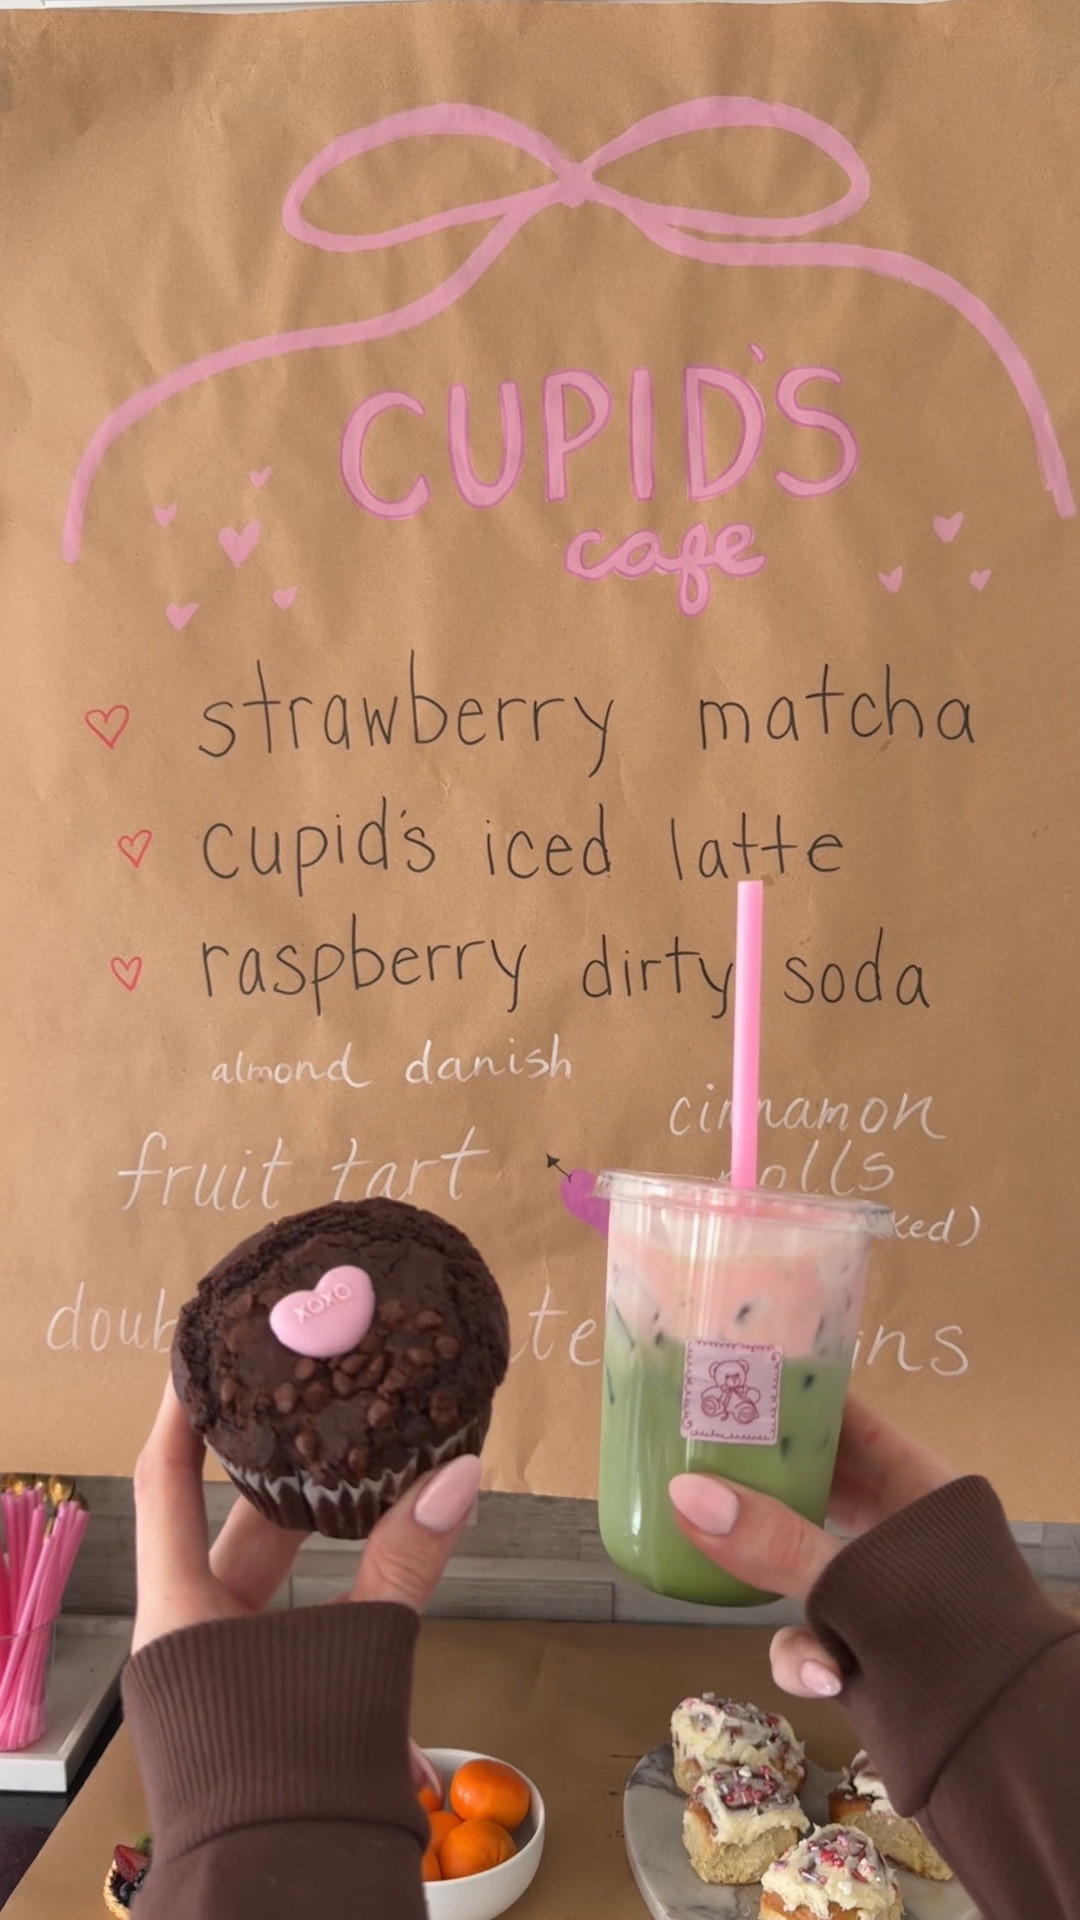 CUPID'S
cafe
strawberry matcha
cupid's iced latte
raspberry dirty soda
almond danish
cinnamon
rolls
fruit tart
XOXO